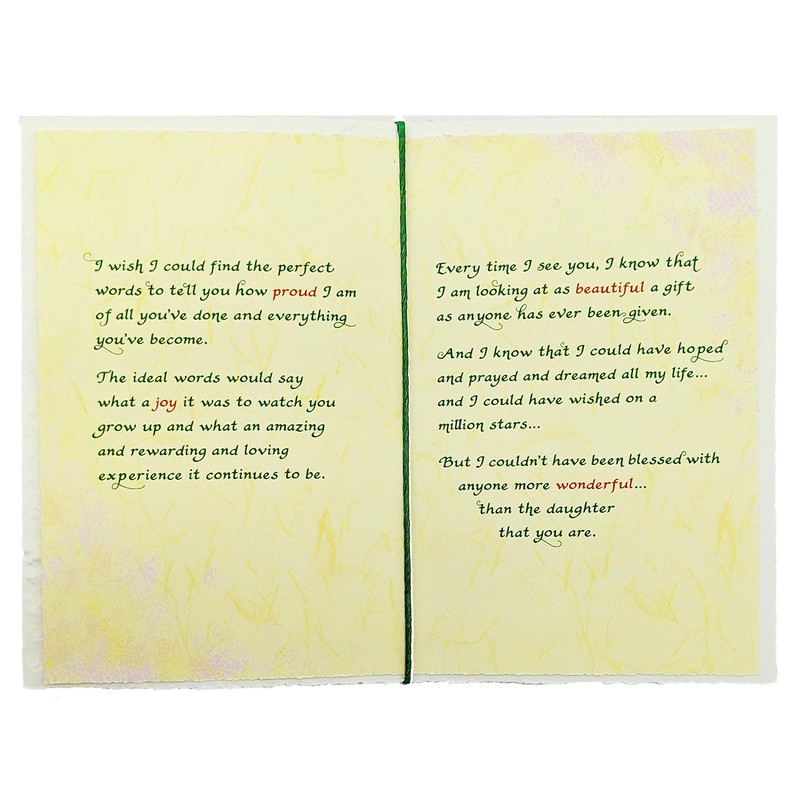 I wish I could find the perfect
words to tell you how proud I am
of all you've done and everything
you've become.
The ideal words would say
what a joy it was to watch you
grow up and what an amazing
and rewarding and loving
experience it continues to be.
Every time I see you, I know that
I am looking at as beautiful a gift
as anyone has ever been given.
And I know that I could have hoped
and prayed and dreamed all my life...
and I could have wished on a
million stars...
But I couldn't have been blessed with
anyone more wonderful...
than the daughter
that you are.